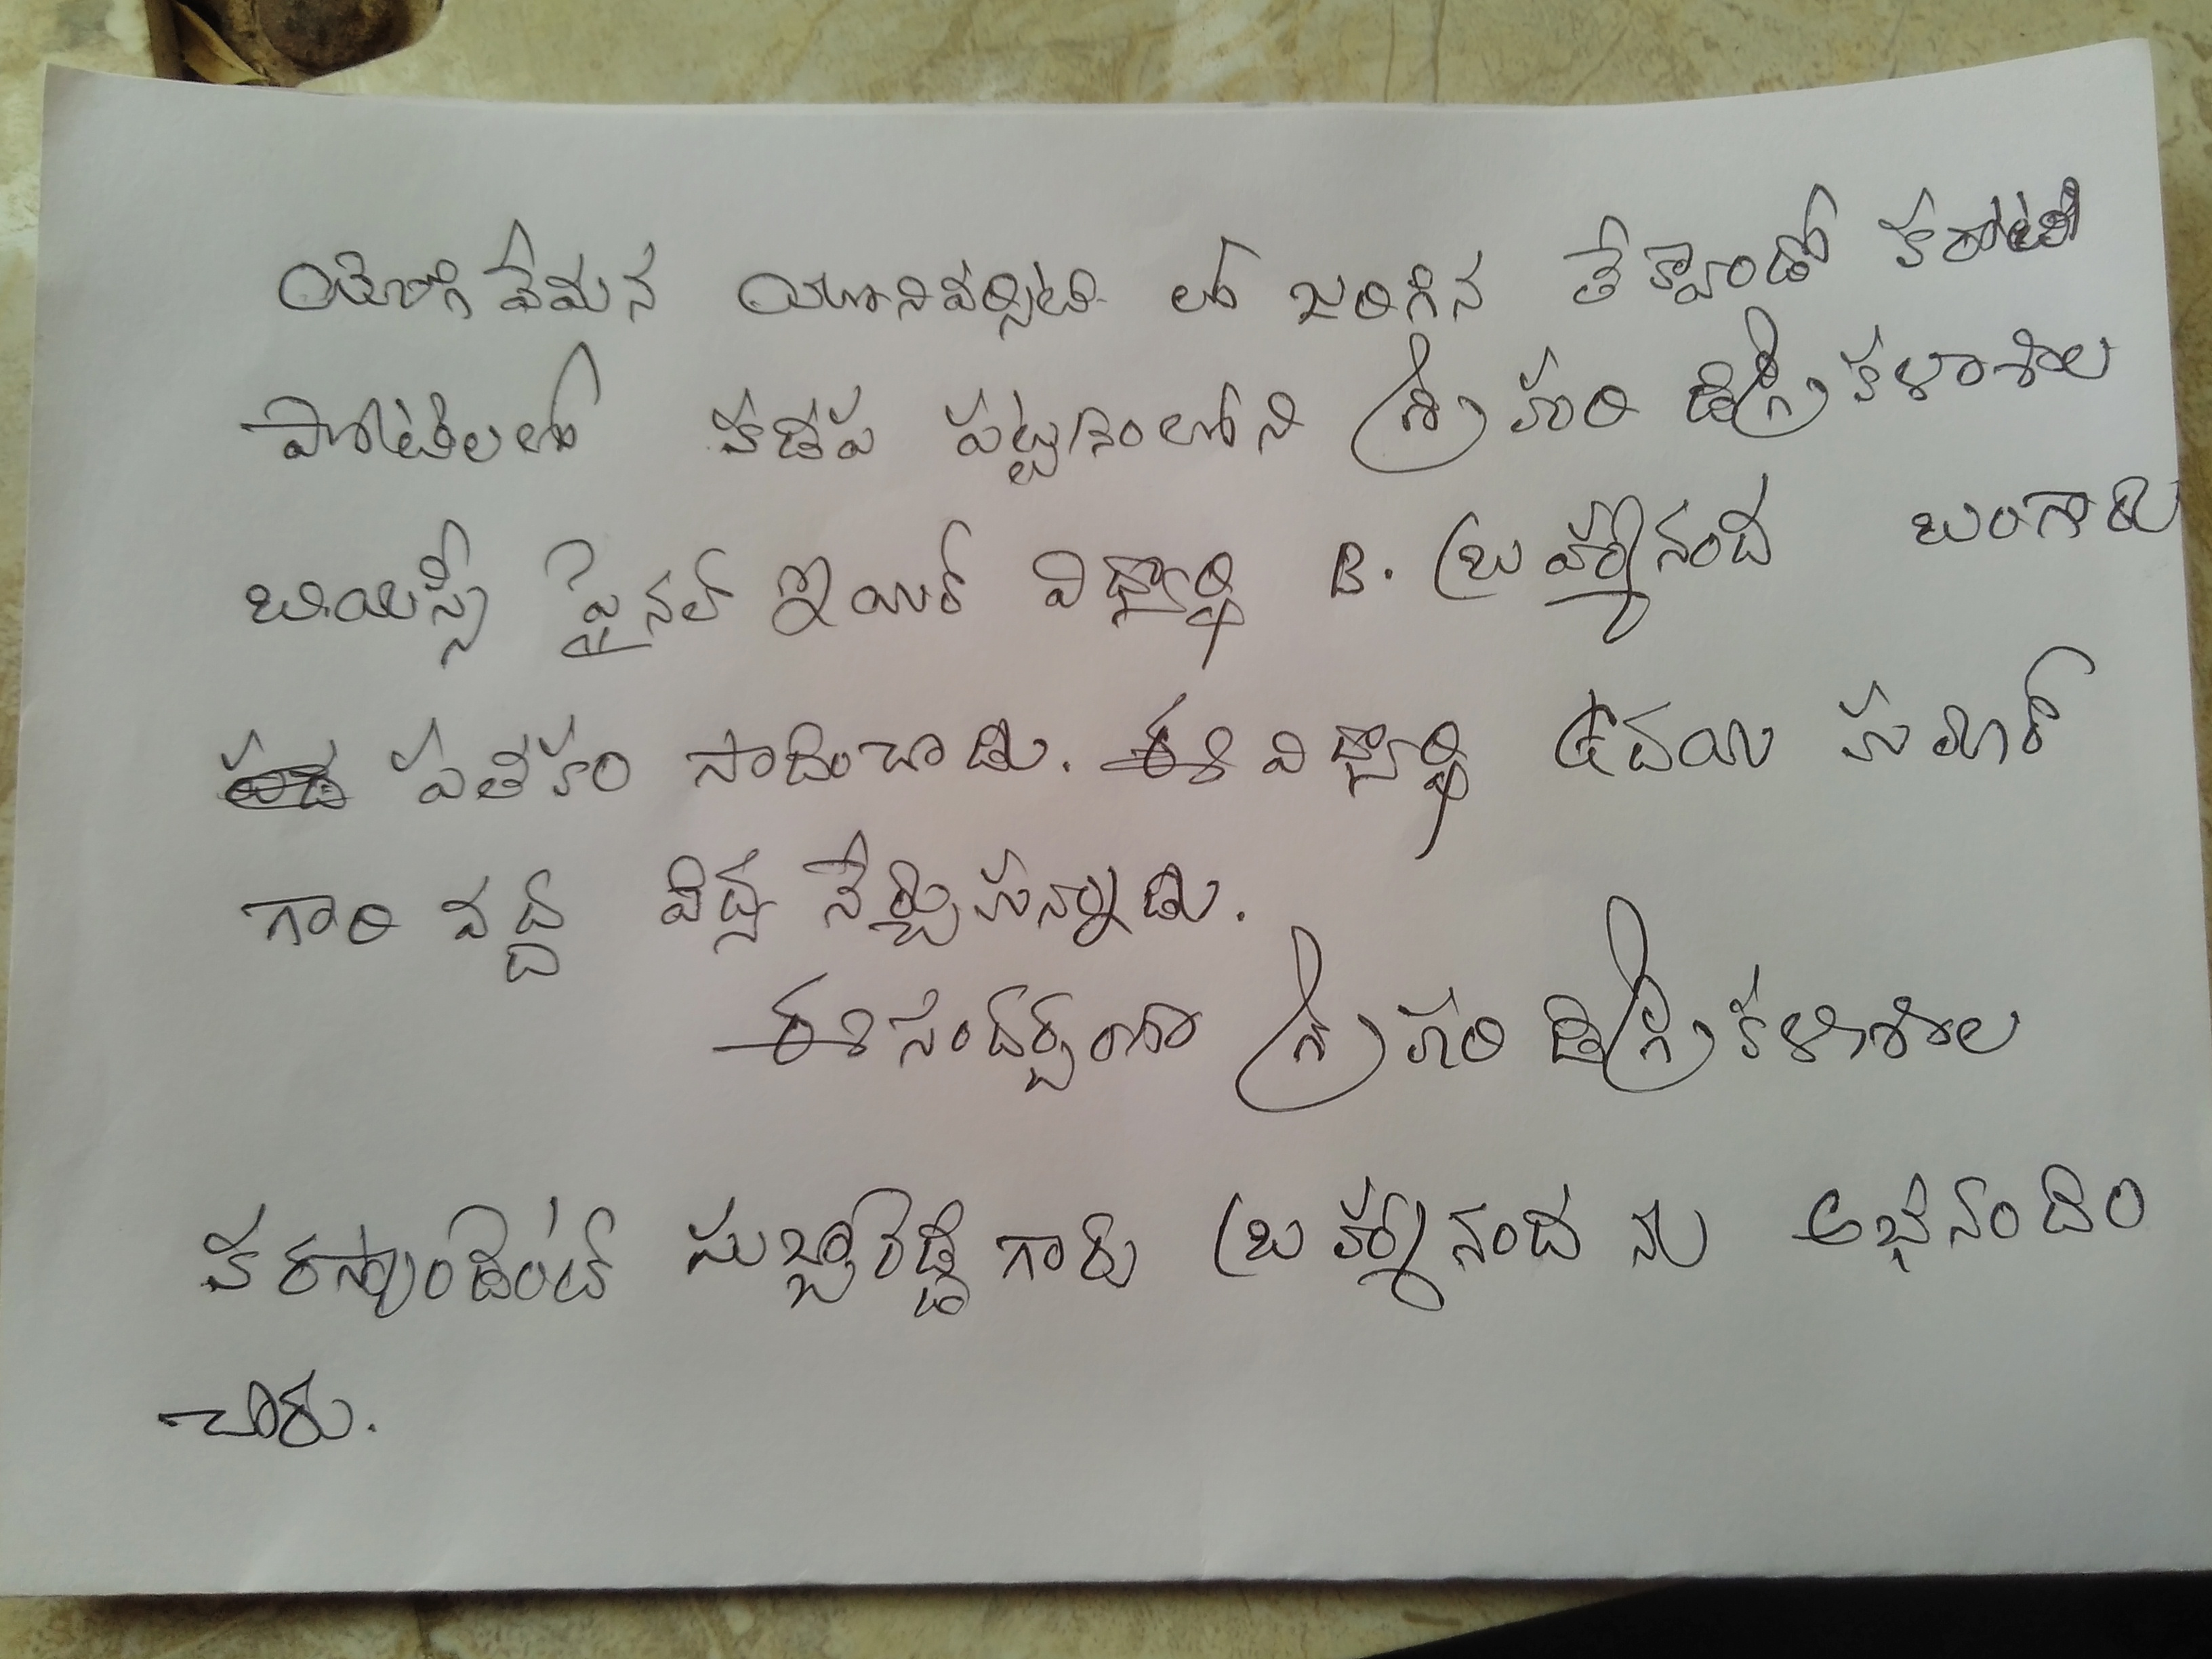 యోగి వేమన యూనివర్సిటి లో జరిగిన తేక్వాండో కరాటే
పోటీలలో కడప పట్టణంలోని శ్రీ హరి డిగ్రీ కళాశాల
బియస్సీ ఫైనల్ ఇయర్ విద్యార్థి B. బ్రహ్మానంద బంగారు
పతకం సాదించాడు. ఈ విద్యార్థి ఉదయ్ కుమార్
గారి వద్ద విద్య నేర్చుకున్నాడు.
ఈ సందర్భంగా శ్రీ హరి డిగ్రీ కళాశాల
కరస్పాండెంట్ సుబ్బారెడ్డి గారు బ్రహ్మానంద ను అభినందిం
చారు.